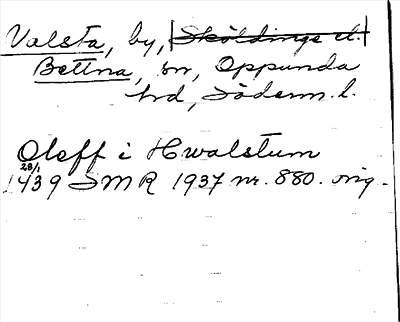 Valsta, by, Sköldinge el.
Bettna, sn, Oppunda
hd, Söderm. l.
Oleff i Hwalstum
28/1
1439 SMR 1937 nr. 880. orig.